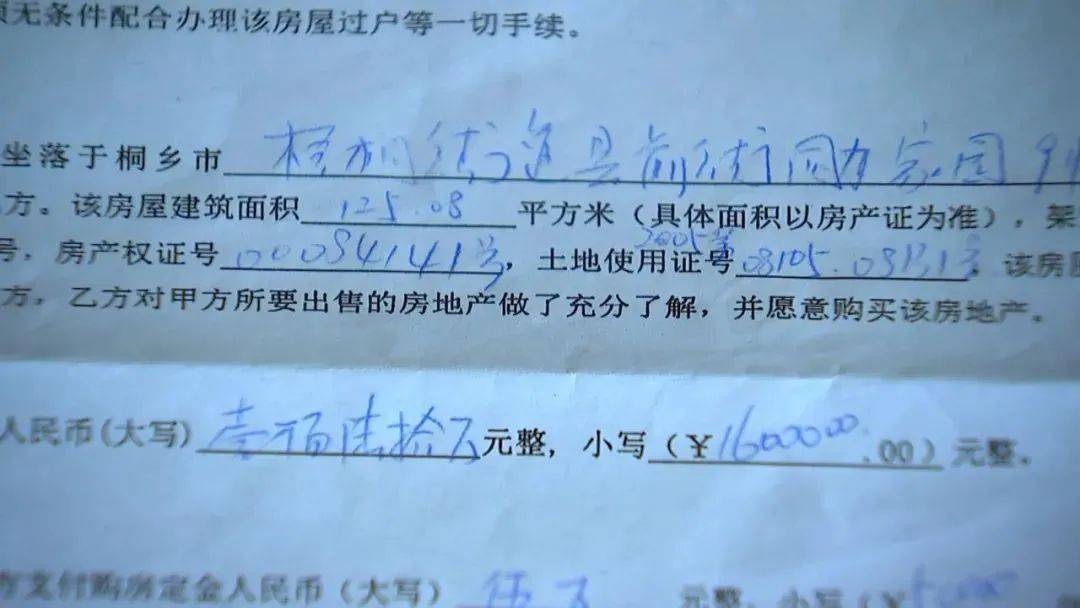 须无条件配合办理该房屋过户等一切手续。
坐落于桐乡市 梧桐街道县前街 家园
方。该房屋建筑面积 125.08 平方米（具体面积以房产证为准），架
号，房产权证号 00084141号，土地使用证号 08105.
方，乙方对甲方所要出售的房地产做了充分了解，并愿意购买该房地产。
人民币(大写) 壹佰陆拾万 元整，小写（¥ .00）元整。
方支付购房定金人民币（大写） 伍万 元整，小写（¥